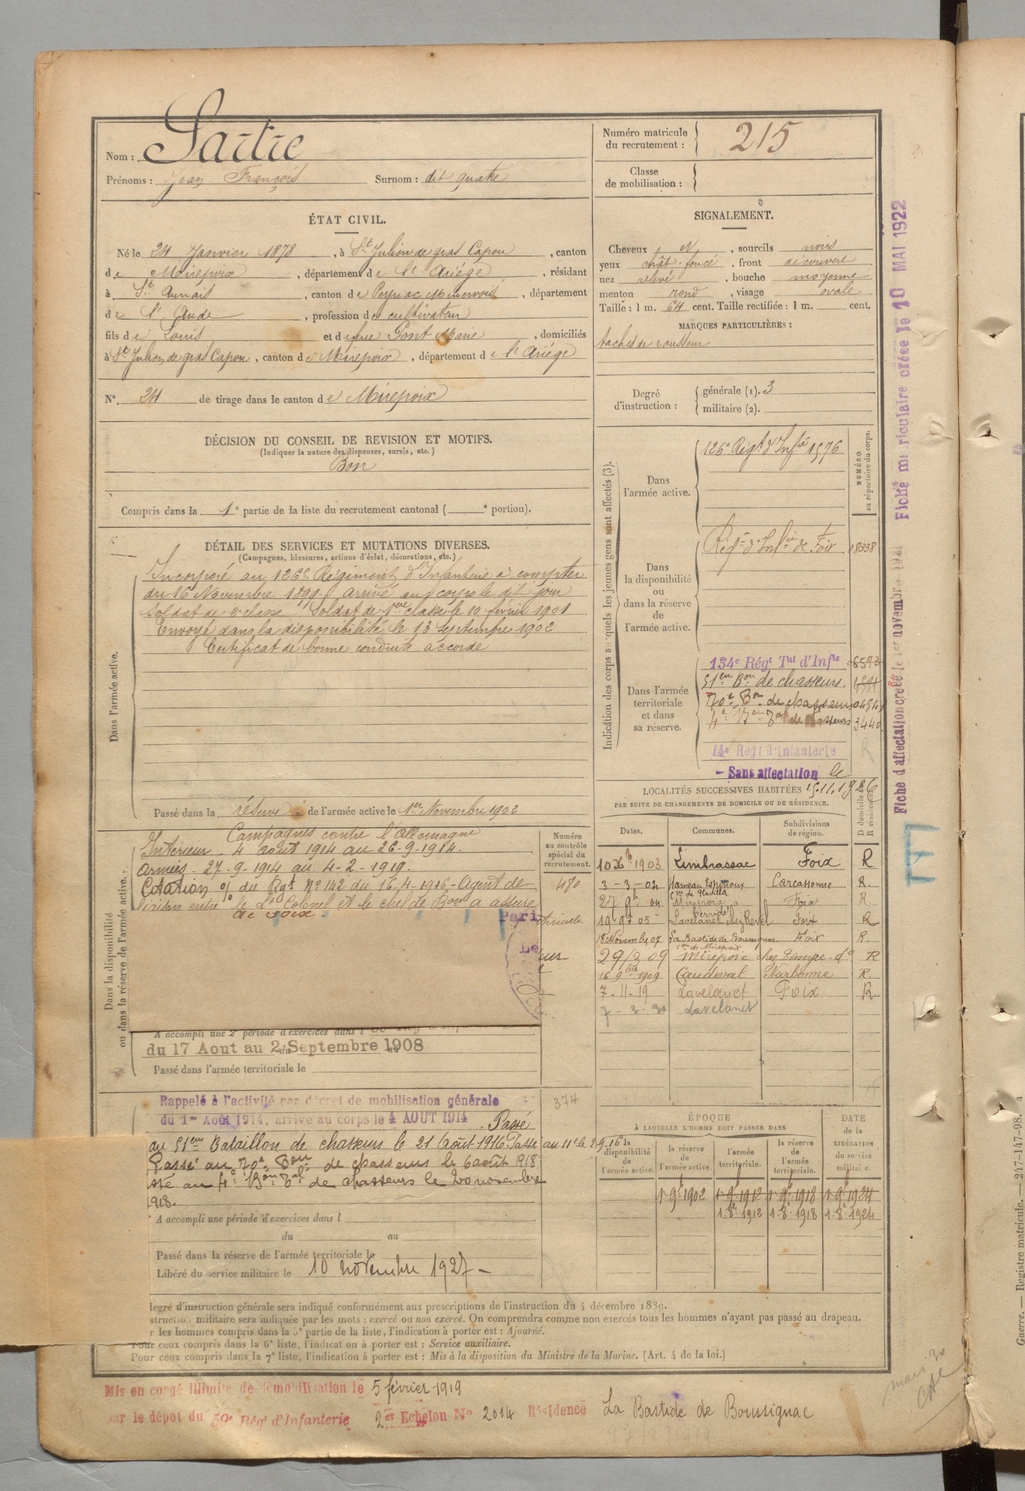 Nom : Sartre
Prénoms : Jean François Surnom : dit quatre
Numéro matricule du recrutement : 215
Classe de mobilisation :
ÉTAT CIVIL.
Né le 24 Janvier 1878, à St Julien de gras Capou, canton
de Mirepoix, département de l'Ariège, résidant
à St Aunais, canton de Peyriac Minervois, département
de l'Aude, profession de cultivateur
fils de Louis et de feue Pont Marie, domiciliés
à St Julien de gras Capou, canton de Mirepoix, département de l'Ariège
N° 24 de tirage dans le canton de Mirepoix
SIGNALEMENT.
Cheveux et, sourcils noirs
yeux chât-foncé, front découvert
nez relevé, bouche moyenne
menton rond, visage ovale
Taille : 1 m. 64 cent. Taille rectifiée : 1 m. cent.
MARQUES PARTICULIÈRES :
taches de rousseur
Degré d'instruction : générale (1). 3
militaire (2).
DÉCISION DU CONSEIL DE REVISION ET MOTIFS.
(Indiquer la nature des dispenses, sursis, etc.)
Bon
Compris dans la 1e partie de la liste du recrutement cantonal ( e portion).
DÉTAIL DES SERVICES ET MUTATIONS DIVERSES.
(Campagnes, blessures, actions d'éclat, décorations, etc.)
Dans l'armée active.
Incorporé au 126e Régiment d'Infanterie à compter
du 16 Novembre 1899, arrivé au corps le dit jour
Soldat de 2e classe Soldat de 1ère classe le 10 février 1901
Envoyé dans la disponibilité le 13 Septembre 1902
Certificat de bonne conduite accordé
Passé dans la réserve de l'armée active le 1er Novembre 1902
Indication des corps auxquels les jeunes gens sont affectés (3).
NUMÉRO au répertoire du corps.
Dans l'armée active.
126e Régt d'Infie 1576
Dans la disponibilité ou dans la réserve de l'armée active.
Régt d'Infie de Foix
Dans l'armée territoriale et dans sa réserve.
134e Régt Tal d'Infie
51e Bon de chasseurs.
70e Bon de chasseurs
4e Bon Tal de chasseurs 3440
14e Régt d'Infanterie
- Sans affectation le
15.11.1926
Dans la disponibilité ou dans la réserve de l'armée active.
Campagnes contre l'Allemagne
Intérieur 4 août 1914 au 26-9-1914.
Armées - 27-9-1914 au 4-2-1919.
Citation O/ du Rgt N° 142 du 16-4-1916 - Agent de
liaison entre le Lt Colonel et le chef de Bon a assuré
Numéro au contrôle spécial du recrutement.
A accompli une 2e période d'exercices dans l
du 17 Aout au 2 Septembre 1908
Passé dans l'armée territoriale le
374
Rappelé à l'activité par décret de mobilisation générale
du 1er Août 1914, arrivé au corps le 4 AOUT 1914. Passé
au 51ème Bataillon de chasseurs le 21 Août 1916 Passé au 11e le 8-9-16
Passé au 70e Bon de chasseurs le 6 août 1918
sté au 4e Bon Tal de chasseurs le 20 novembre
1918.
A accompli une période d'exercices dans l
du au
Passé dans la réserve de l'armée territoriale le
Libéré du service militaire le 10 novembre 1927 -
LOCALITÉS SUCCESSIVES HABITÉES
PAR SUITE DE CHANGEMENTS DE DOMICILE OU DE RÉSIDENCE.
Dates. Communes. Subdivisions de région. D domicile R résidence
1903 Limbrassac Foix R
3-3-04 Hameau Carcassonne R.
Mirepoix Foix R.
Lavelanet Foix R
18 Novembre 07 La Bastide de Bousignac Foix R.
29/3 09 Mirepoix do R
1909 Caudeval Narbonne R.
7-11-19 Lavelanet Foix R
7-3-30 Lavelanet
ÉPOQUE À LAQUELLE L'HOMME DOIT PASSER DANS
la disponibilité de l'armée active.
la réserve de l'armée active.
l'armée territoriale.
la réserve de l'armée territoriale.
DATE de la LIBÉRATION du service militaire.
1-9-1902 1-9-1912 1-9-1918 1-9-1924
1-8-1912 1-8-1918 1-8-1924
legré d'instruction générale sera indiqué conformément aux prescriptions de l'instruction du 4 décembre 1889.
structio militaire sera indiquée par les mots : exercé ou non exercé. On comprendra comme non exercés tous les hommes n'ayant pas passé au drapeau.
r les hommes compris dans la 5e partie de la liste, l'indication à porter est : Ajourné.
Pour ceux compris dans la 6e liste, l'indication à porter est : Service auxiliaire.
Pour ceux compris dans la 7e liste, l'indication à porter est : Mis à la disposition du Ministre de la Marine. (Art. 4 de la loi.)
Mis en congé illimité de démobilisation le 5 février 1919
par le dépôt du 59e Régt d'Infanterie 2e Echelon N° 2014 Résidence La Bastide de Boussignac
Fiche d'affectation créée le 1er novembre 1921 Fiche matriculaire créée le 10 MAI 1922